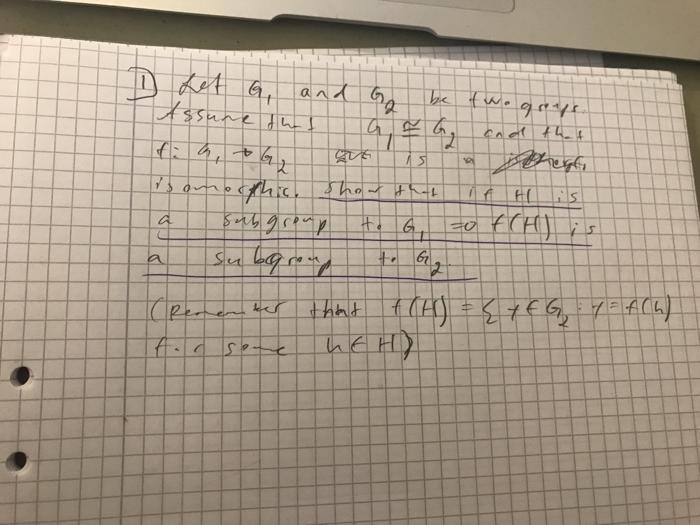 1) Let G₁ and G₂ be two groups.
Assume that G₁ ≅ G₂ and that
f: G₁ → G₂ is a
isomorphic. Show that if H is
a subgroup to G₁ => f(H) is
a subgroup to G₂.
(Remember that f(H) = { y ∈ G₂ : y = f(h)
for some h ∈ H})